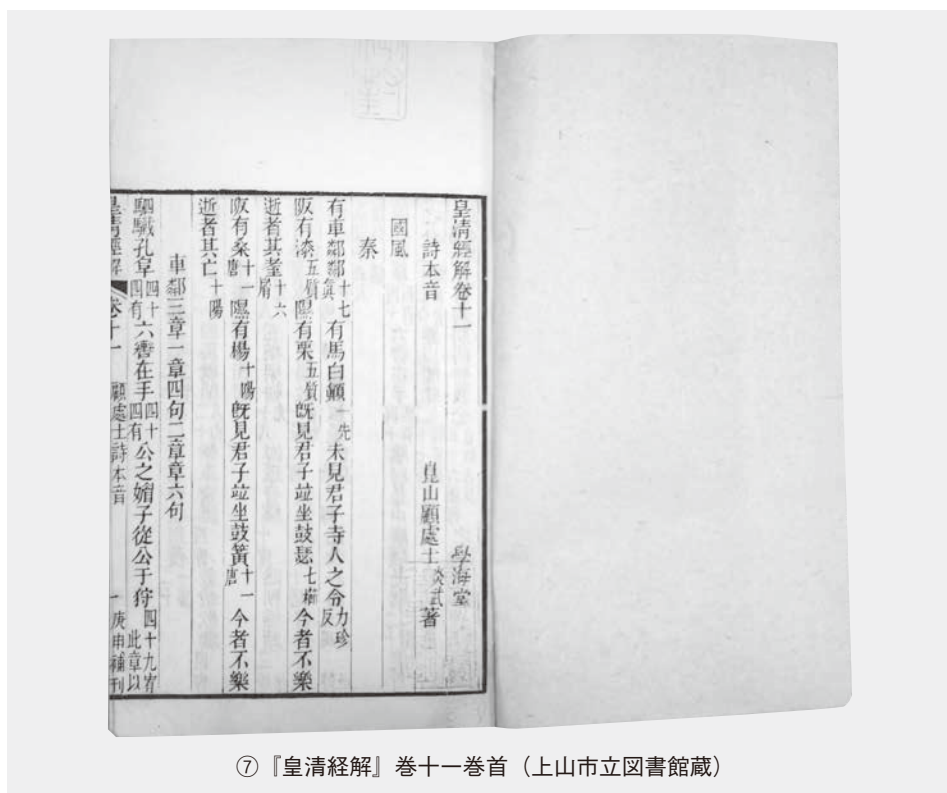 皇清經解卷十一 學海堂
詩本音 崑山顧處士炎武著
國風
秦
有車鄰鄰十七眞有馬白顚一先未見君子寺人之令力珍反
阪有漆五質隰有栗五質旣見君子竝坐鼓瑟七櫛今者不樂
逝者其耋十六屑
阪有桑十一唐隰有楊十陽旣見君子竝坐鼓簧十一唐今者不樂
逝者其亡十陽
車鄰三章一章四句二章章六句
駟驖孔阜四十四有六轡在手四十四有公之媚子從公于狩四十九宥此章以
皇清經解 卷十一 顧處士詩本音 一 庚申補刊
⑦『皇清経解』巻十一巻首（上山市立図書館蔵）